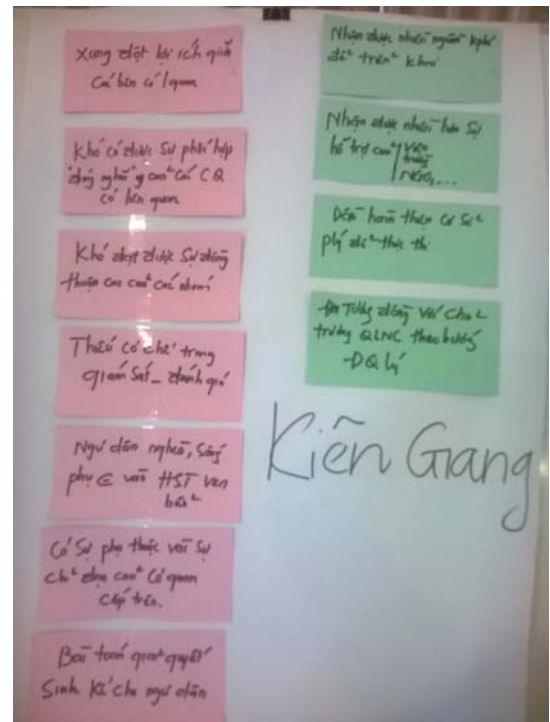 Xung đột lợi ích giữa
các bên có l quan
Khó có được sự phối hợp
đúng nghĩa của các CQ
có liên quan
Khó đạt được sự đồng
thuận cao của các nhóm
Thiếu cơ chế trong
giám sát _ đánh giá
Người dân nghèo, sống
phụ ∈ vào HST ven
biển
Có sự phụ thuộc vào sự
chỉ đạo của cơ quan
cấp trên.
Bài toán giải quyết
sinh kế cho người dân
Nhận được nhiều nguồn kphí
để triển khai
Nhận được nhiều hơn sự
hỗ trợ của
viện
trường
NGO, ...
Dần hoàn thiện cơ sở
plý để thực thi
tương đồng với chủ
trương QLNC theo hướng
ĐQ lý
Kiên Giang